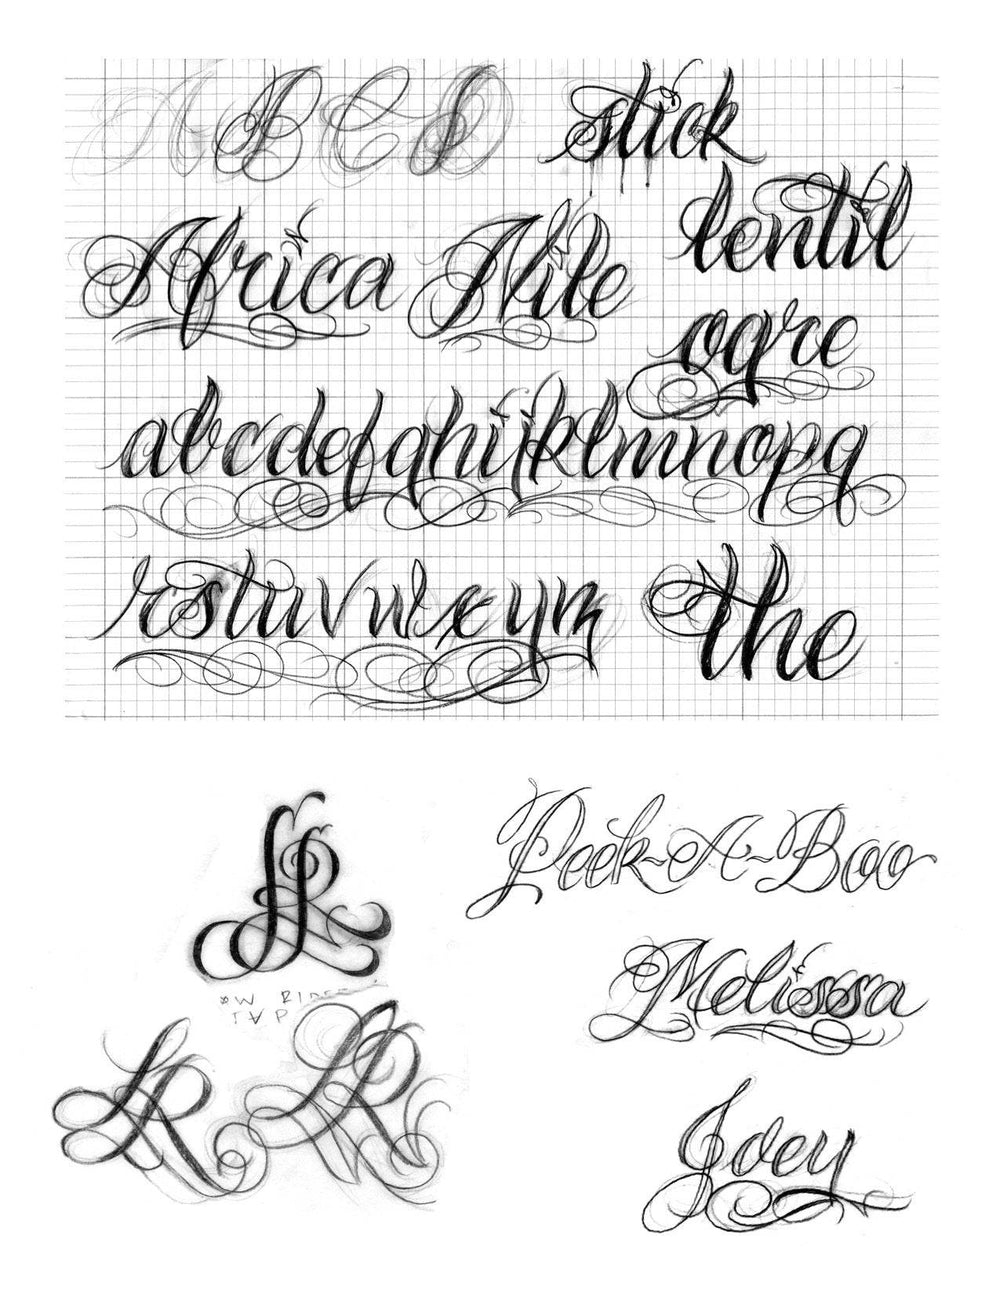 A B C D stick
lentil
Africa Nile
ogre
abcdefghijklmnopq
rstuvwxyz the
Peek-A-Boo
Melissa
Joey